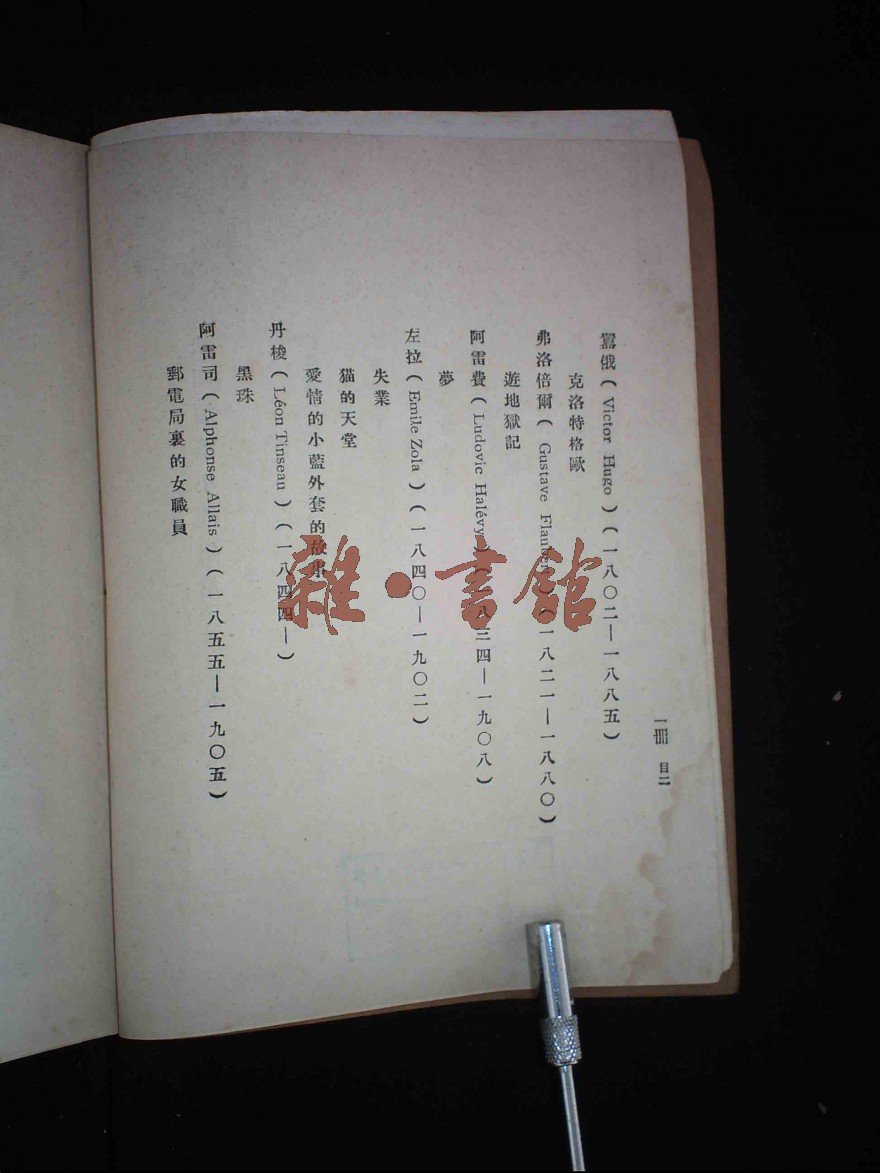 囂俄(Victor Hugo)(一八〇二—一八八五)
克洛特格歐
弗洛倍爾(Gustave Flaubert)(一八二一—一八八〇)
遊地獄記
阿雷費(Ludovic Halévy)(一八三四—一九〇八)
夢
左拉(Emile Zola)(一八四〇—一九〇二)
失業
猫的天堂
愛情的小藍外套的故事
丹梭(Léon Tinseau)(一八四四—)
黑珠
阿雷司(Alphonse Allais)(一八五五—一九〇五)
郵電局裏的女職員
一冊 目二
雜·書館